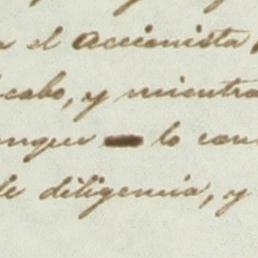 a el accionista
cabo, y mientra
unque lo con
de diligencia, y